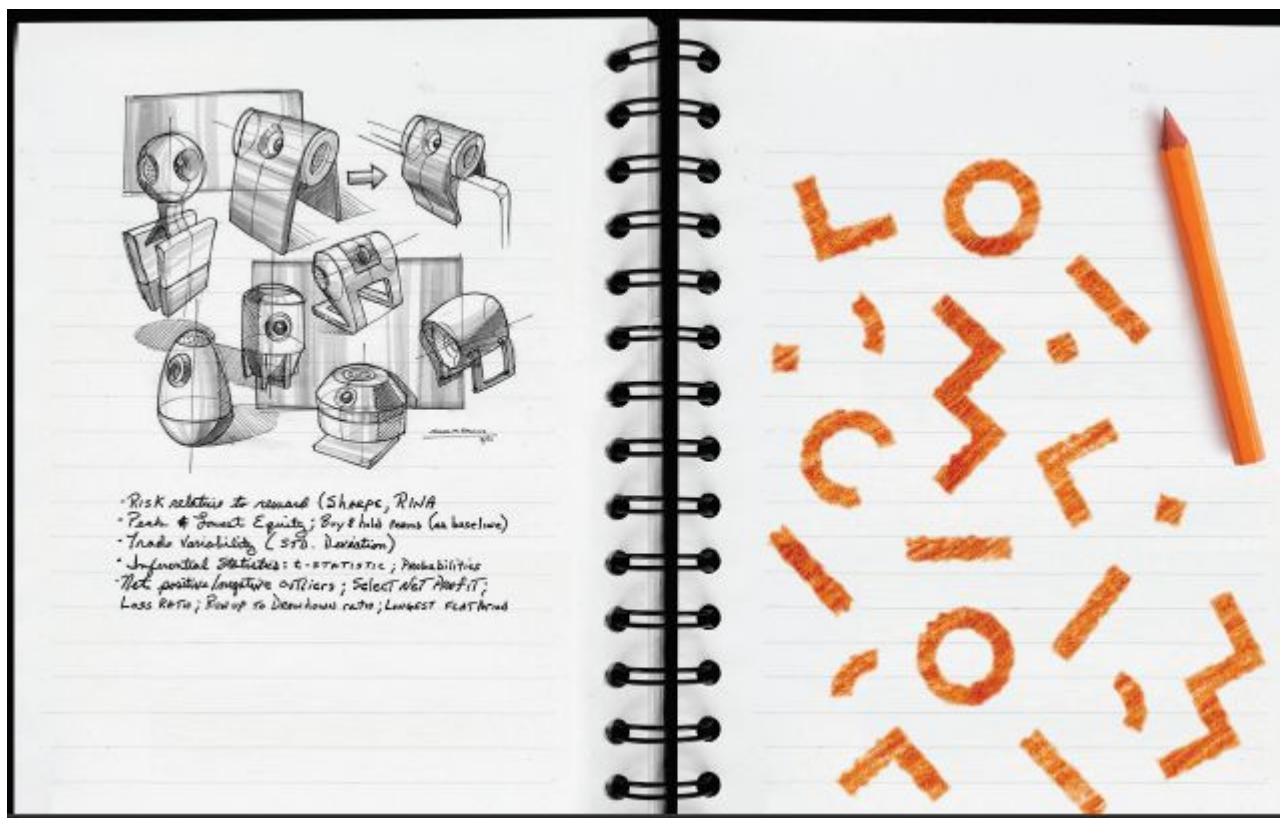 -Risk relative to reward (Sharpe, RINA
-Peak & Lowest Equity; Buy & hold means (as baseline)
-Trade Variability (STD. Deviation)
-Inferential Statistics: t-STATISTIC; Probabilities
-Net positive/negative outliers; Select NET PROFIT;
Loss RATIO; Run up to Drawdown ratio; LONGEST FLAT Period